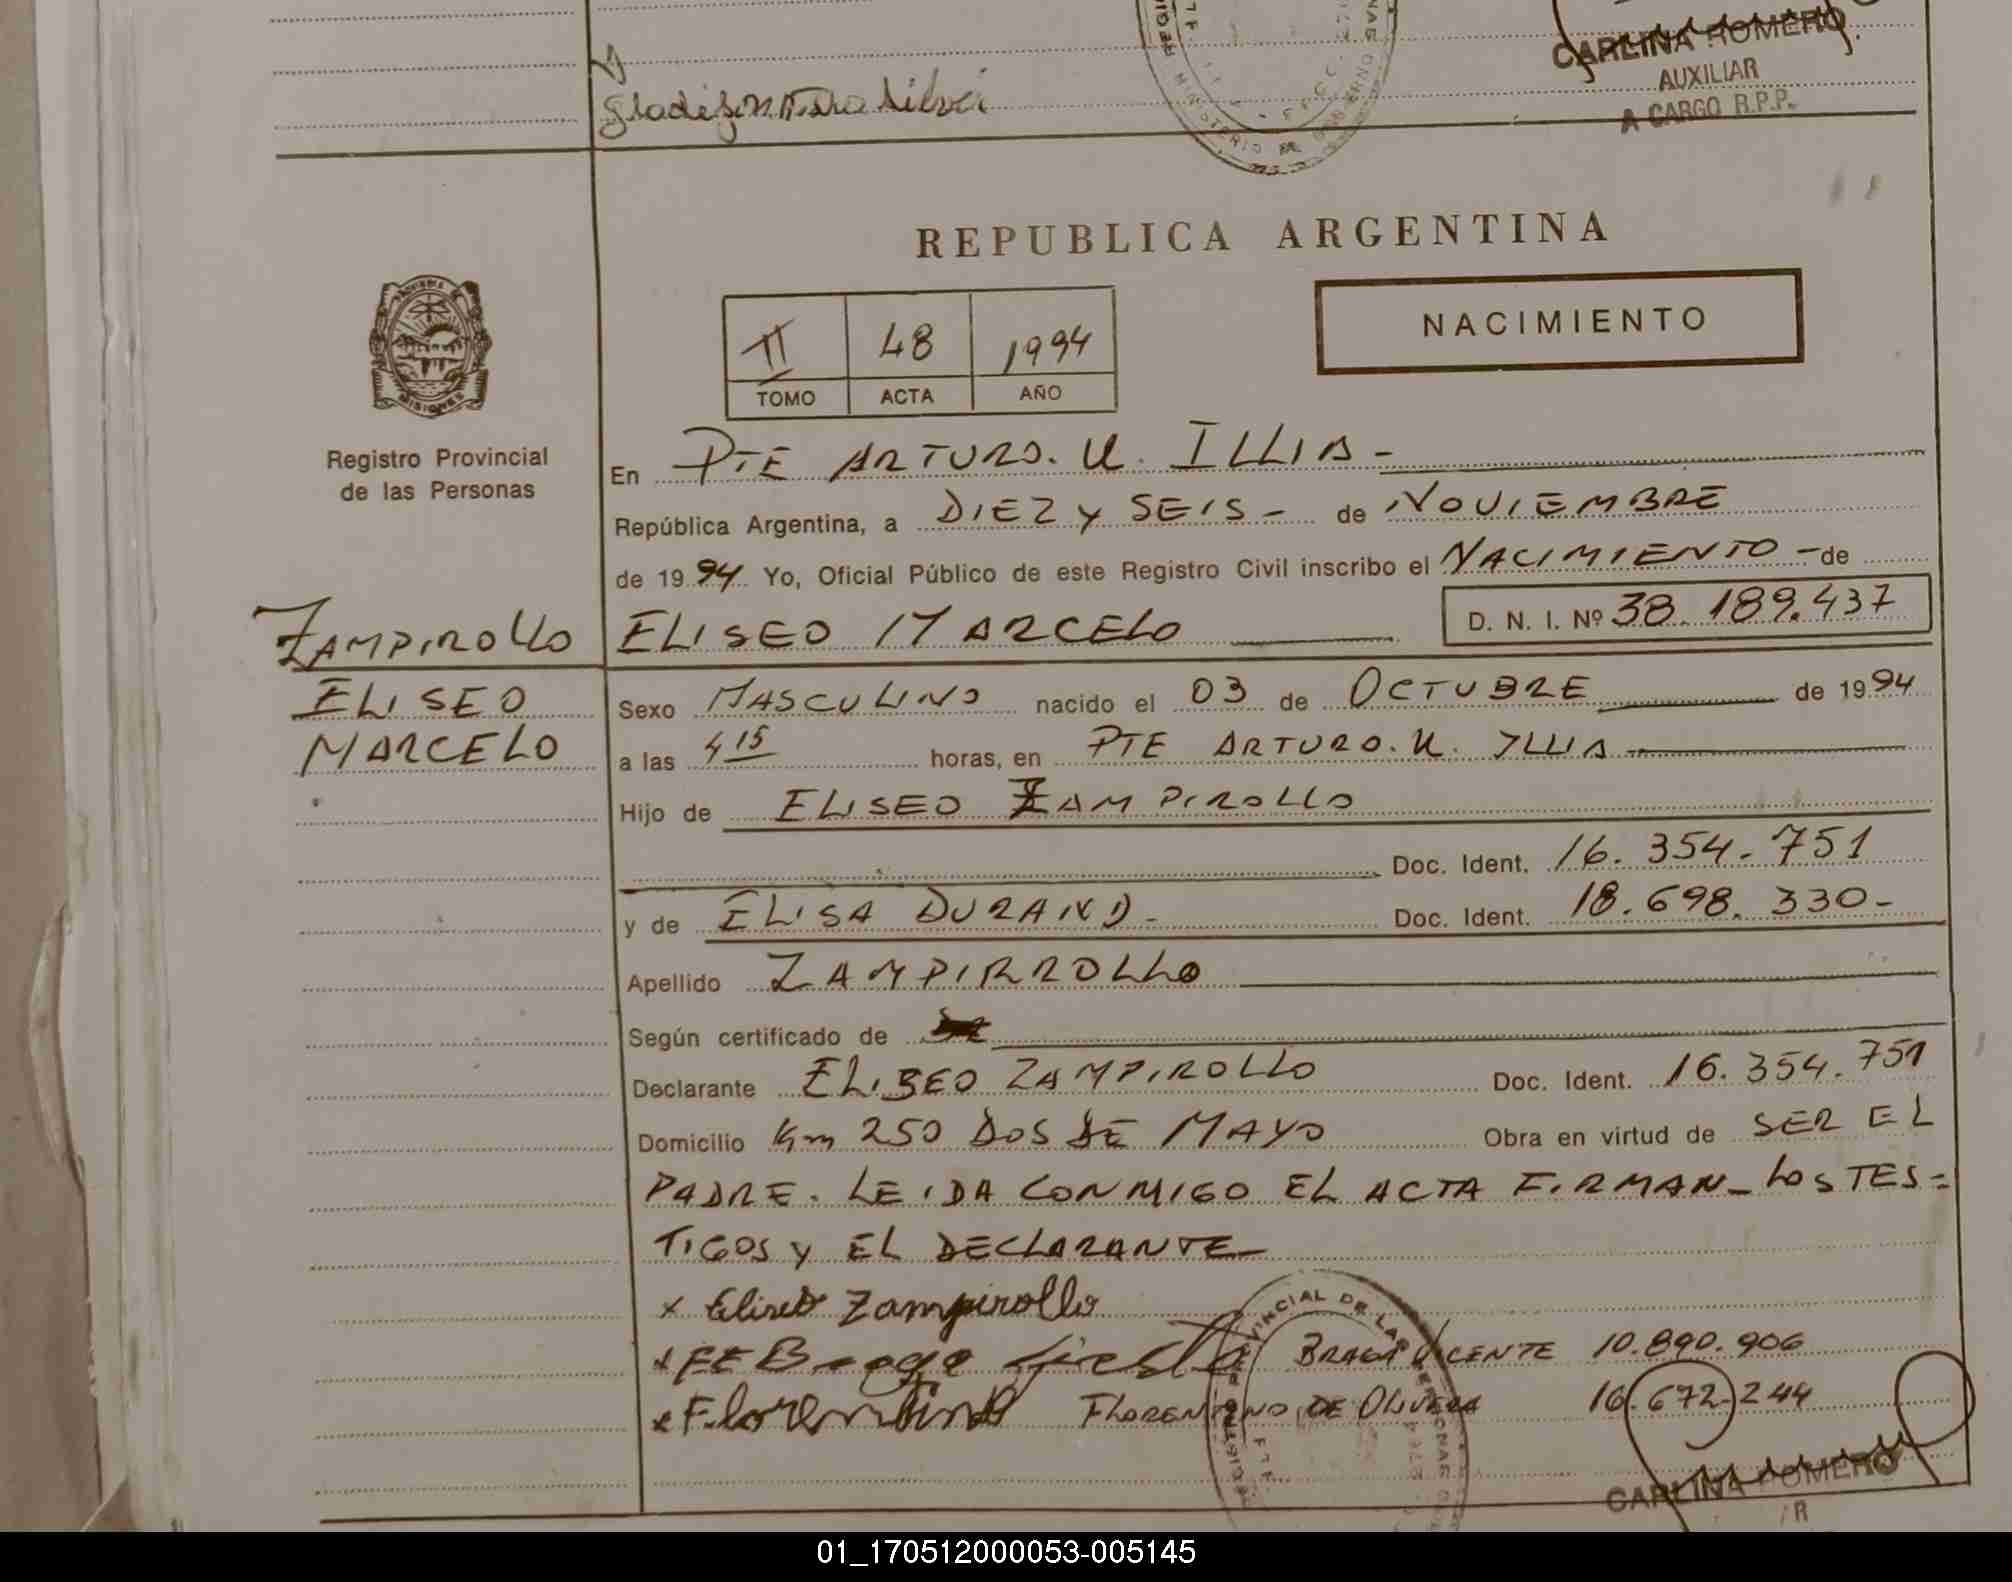 CARLINA ROMERO
AUXILIAR
A CARGO R.P.P.
REPUBLICA ARGENTINA
NACIMIENTO
II 48 1994
TOMO ACTA AÑO
MISIONES
Registro Provincial
de las Personas
En PTE ARTURO. U. ILLIA -
República Argentina, a DIEZ y SEIS - de NOVIEMBRE
de 1994 Yo, Oficial Público de este Registro Civil inscribo el NACIMIENTO - de
ZAMPIROLLO
ELISEO
MARCELO
ELISEO MARCELO D. N. I. Nº 38.189.437
Sexo MASCULINO nacido el 03 de OCTUBRE de 1994
a las 4 15 horas, en PTE ARTURO. U. ILLIA -
Hijo de ELISEO ZAMPIROLLO
Doc. Ident. 16.354.751
y de ELISA DURAND - Doc. Ident. 18.698.330 -
Apellido ZAMPIRROLLO
Según certificado de
Declarante ELISEO ZAMPIROLLO Doc. Ident. 16.354.751
Domicilio Km 250 DOS DE MAYO Obra en virtud de SER EL
PADRE. LEIDA CONMIGO EL ACTA FIRMAN - LOS TES=
TIGOS y EL DECLARANTE -
x Eliseo Zampirollo
BRAGA VICENTE 10.890.906
x Florentino FLORENTINO DE OLIVERA 16.672.244
CARLINA ROMERO
01_170512000053-005145